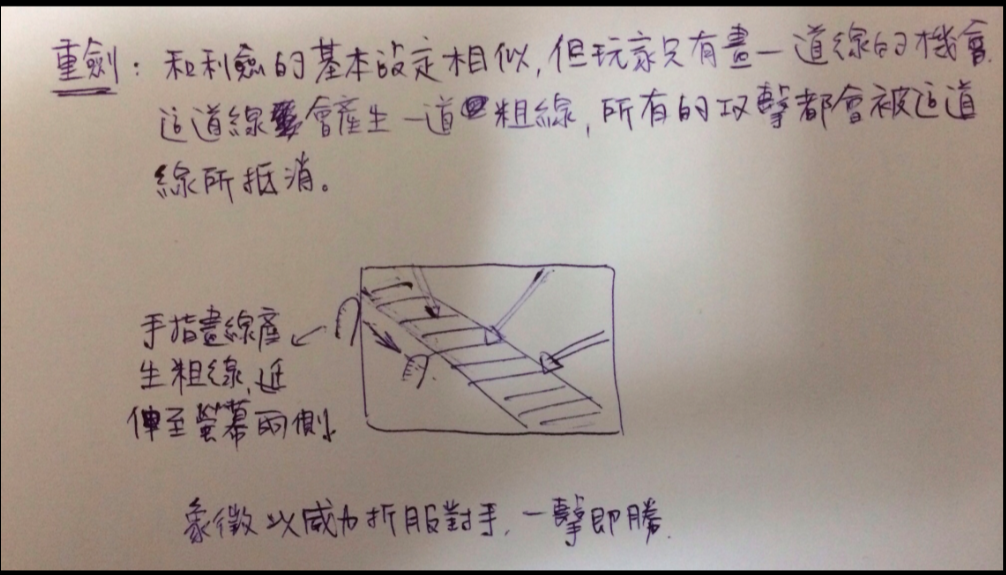 重劍：和利劍的基本設定相似，但玩家只有畫一道線的機會.
這道線會產生一道粗線，所有的攻擊都會被這道
線所抵消。
手指畫線產
生粗線，延
伸至螢幕兩側
象徵以威力折服對手，一擊即勝.